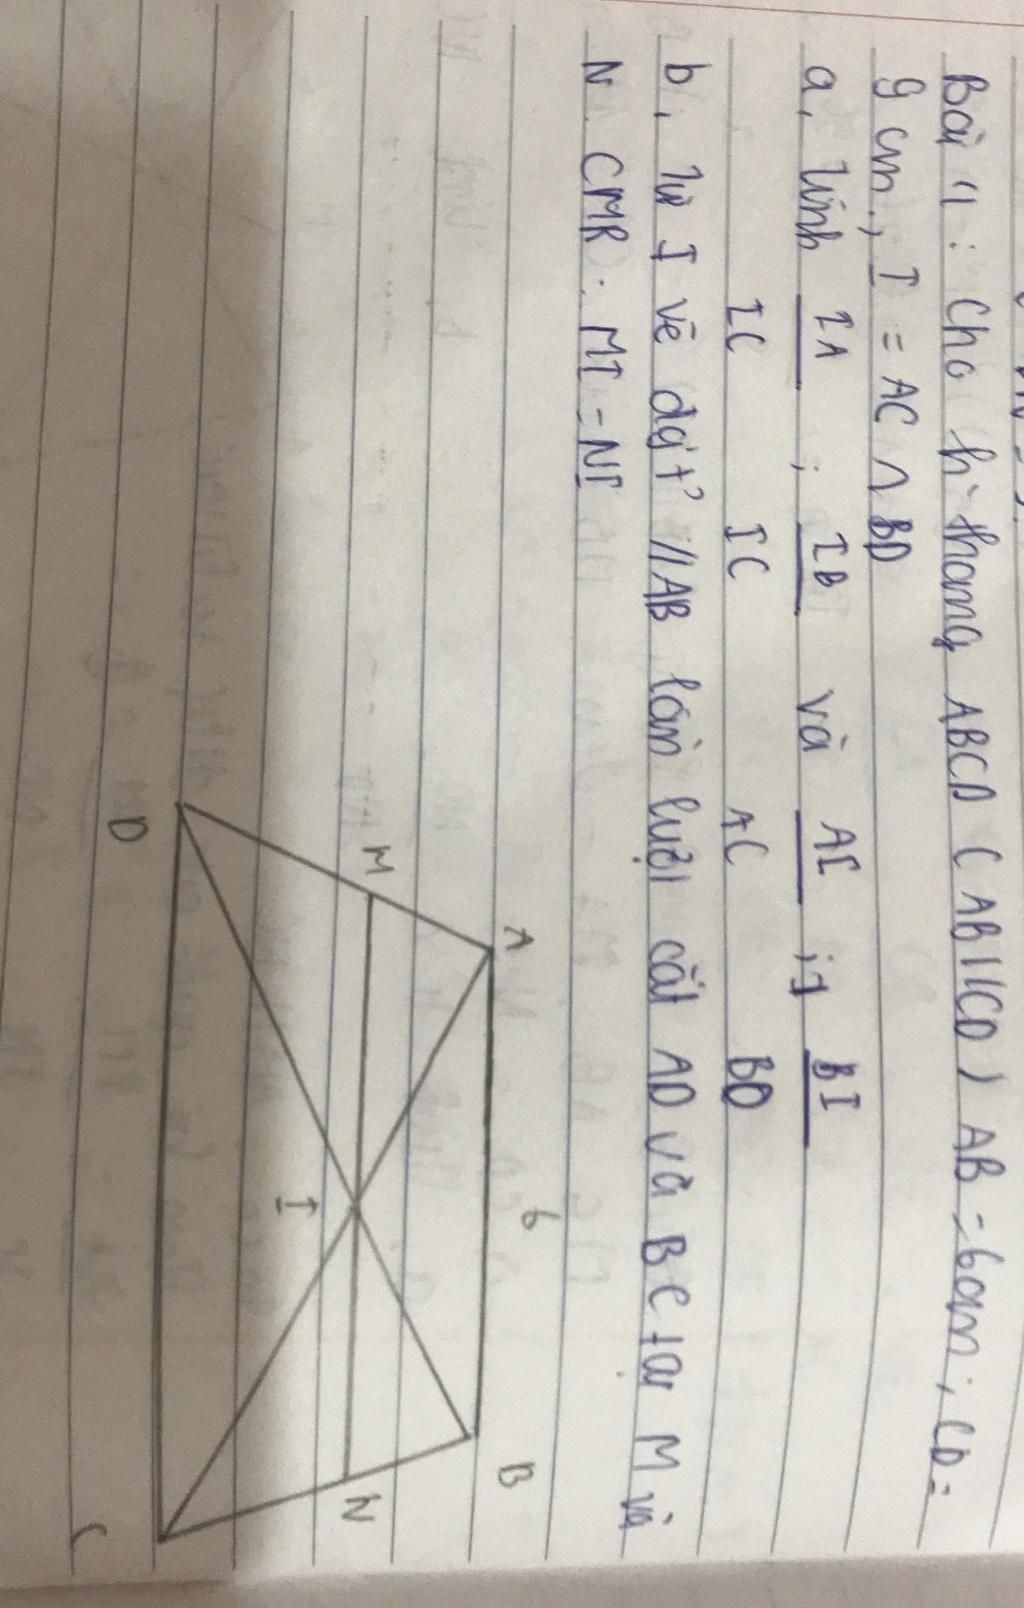 Bài 4 : Cho h. thang ABCD ( AB//CD ) AB = 6cm ; CD =
9 cm ; I = AC ∩ BD
a, Tính IA/IC ; IB/IC và AI/AC ; BI/BD
b, Từ I vẽ đgt // AB lần lượt cắt AD và BC tại M và
N . CMR : MI = NI
A 6 B
M N
I
D C